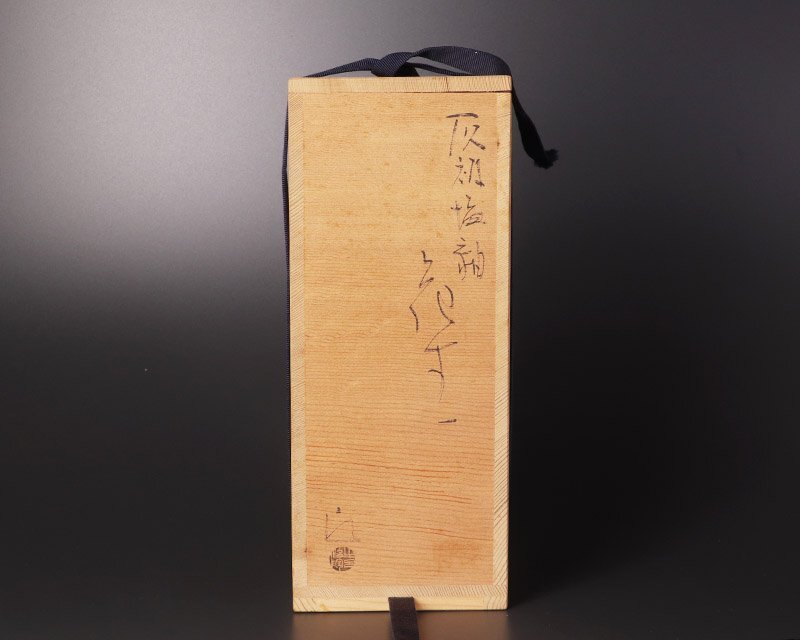 灰被塩釉
花生